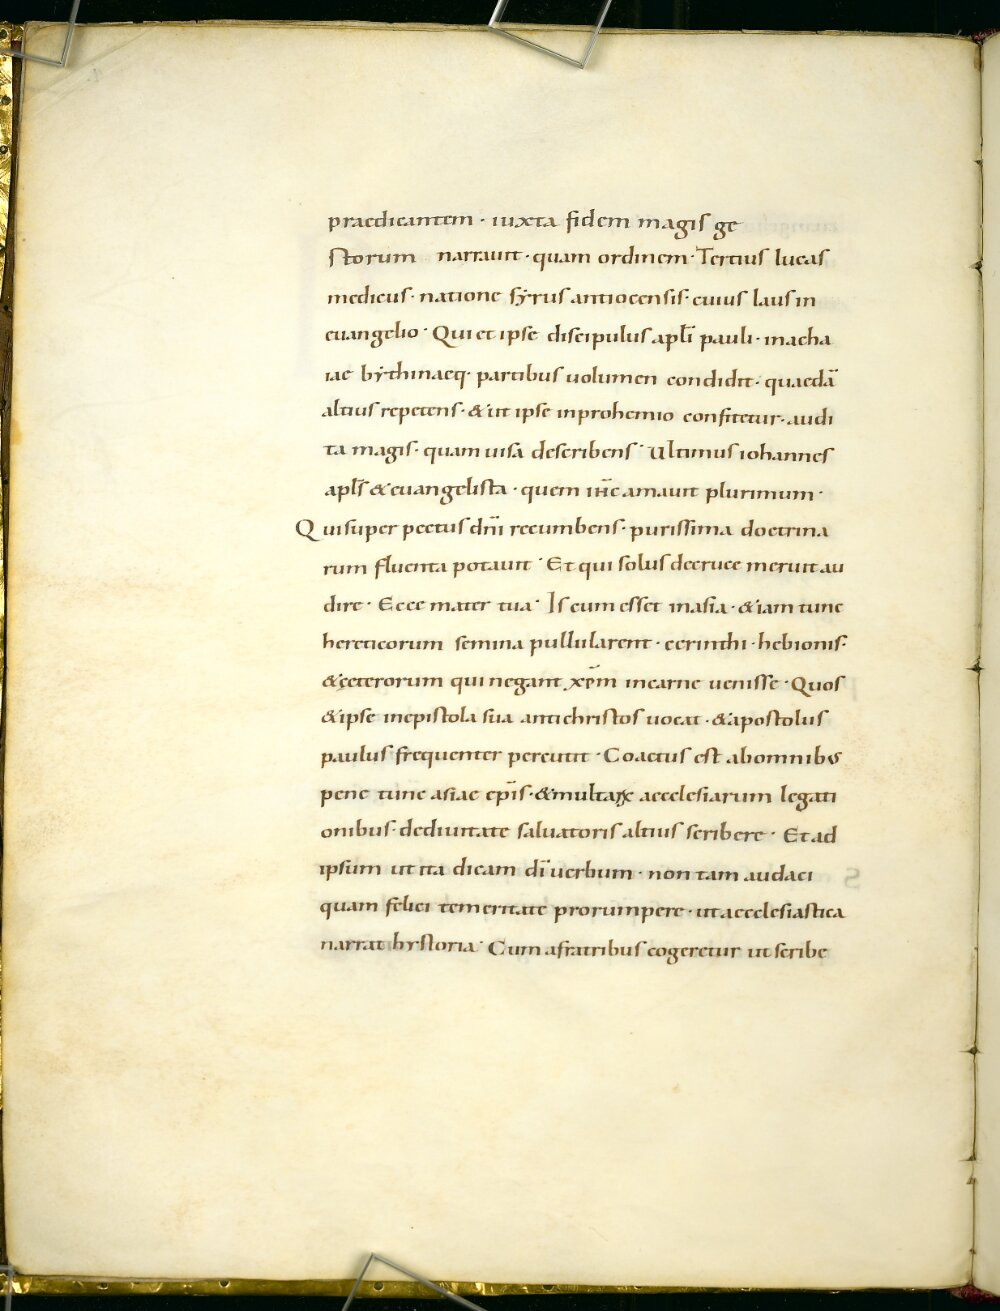 praedicantem · iuxta fidem magis ge
storum narrauit · quam ordinem · Tertius lucas
medicus · natione syrus antiocensis · cuius laus in
euangelio · Qui et ipse discipulus apłi pauli · inacha
iae bythinaeq· partibus uolumen condidit · quaedā
altius repetens · & ut ipse inprohemio confitetur · audi
ta magis · quam uisa describens · Ultimus iohannes
apłs & euangelista · quem ihc̄ amauit plurimum ·
Qui super pectus dn̄i recumbens · purissima doctrina
rum fluenta potauit · Et qui solus decruce meruit au
dire · Ecce mater tua · Is cum esset inasia · & iam tunc
hereticorum semina pullularent · cerinthi · hebionis ·
& ceterorum qui negant xp̄m incarne uenisse · Quos
& ipse inepistola sua antichristos uocat · & apostolus
paulus frequenter percutit · Coactus est abomnibus
pene tunc asiae ep̄is · & multaꝝ aecclesiarum legati
onibus · dediuitate saluatoris altius scribere · Et ad
ipsum ut ita dicam dī uerbum · non tam audaci
quam felici temeritate prorumpere · ut aecclesiastica
narrat hystoria · Cum afratribus cogeretur ut scribe